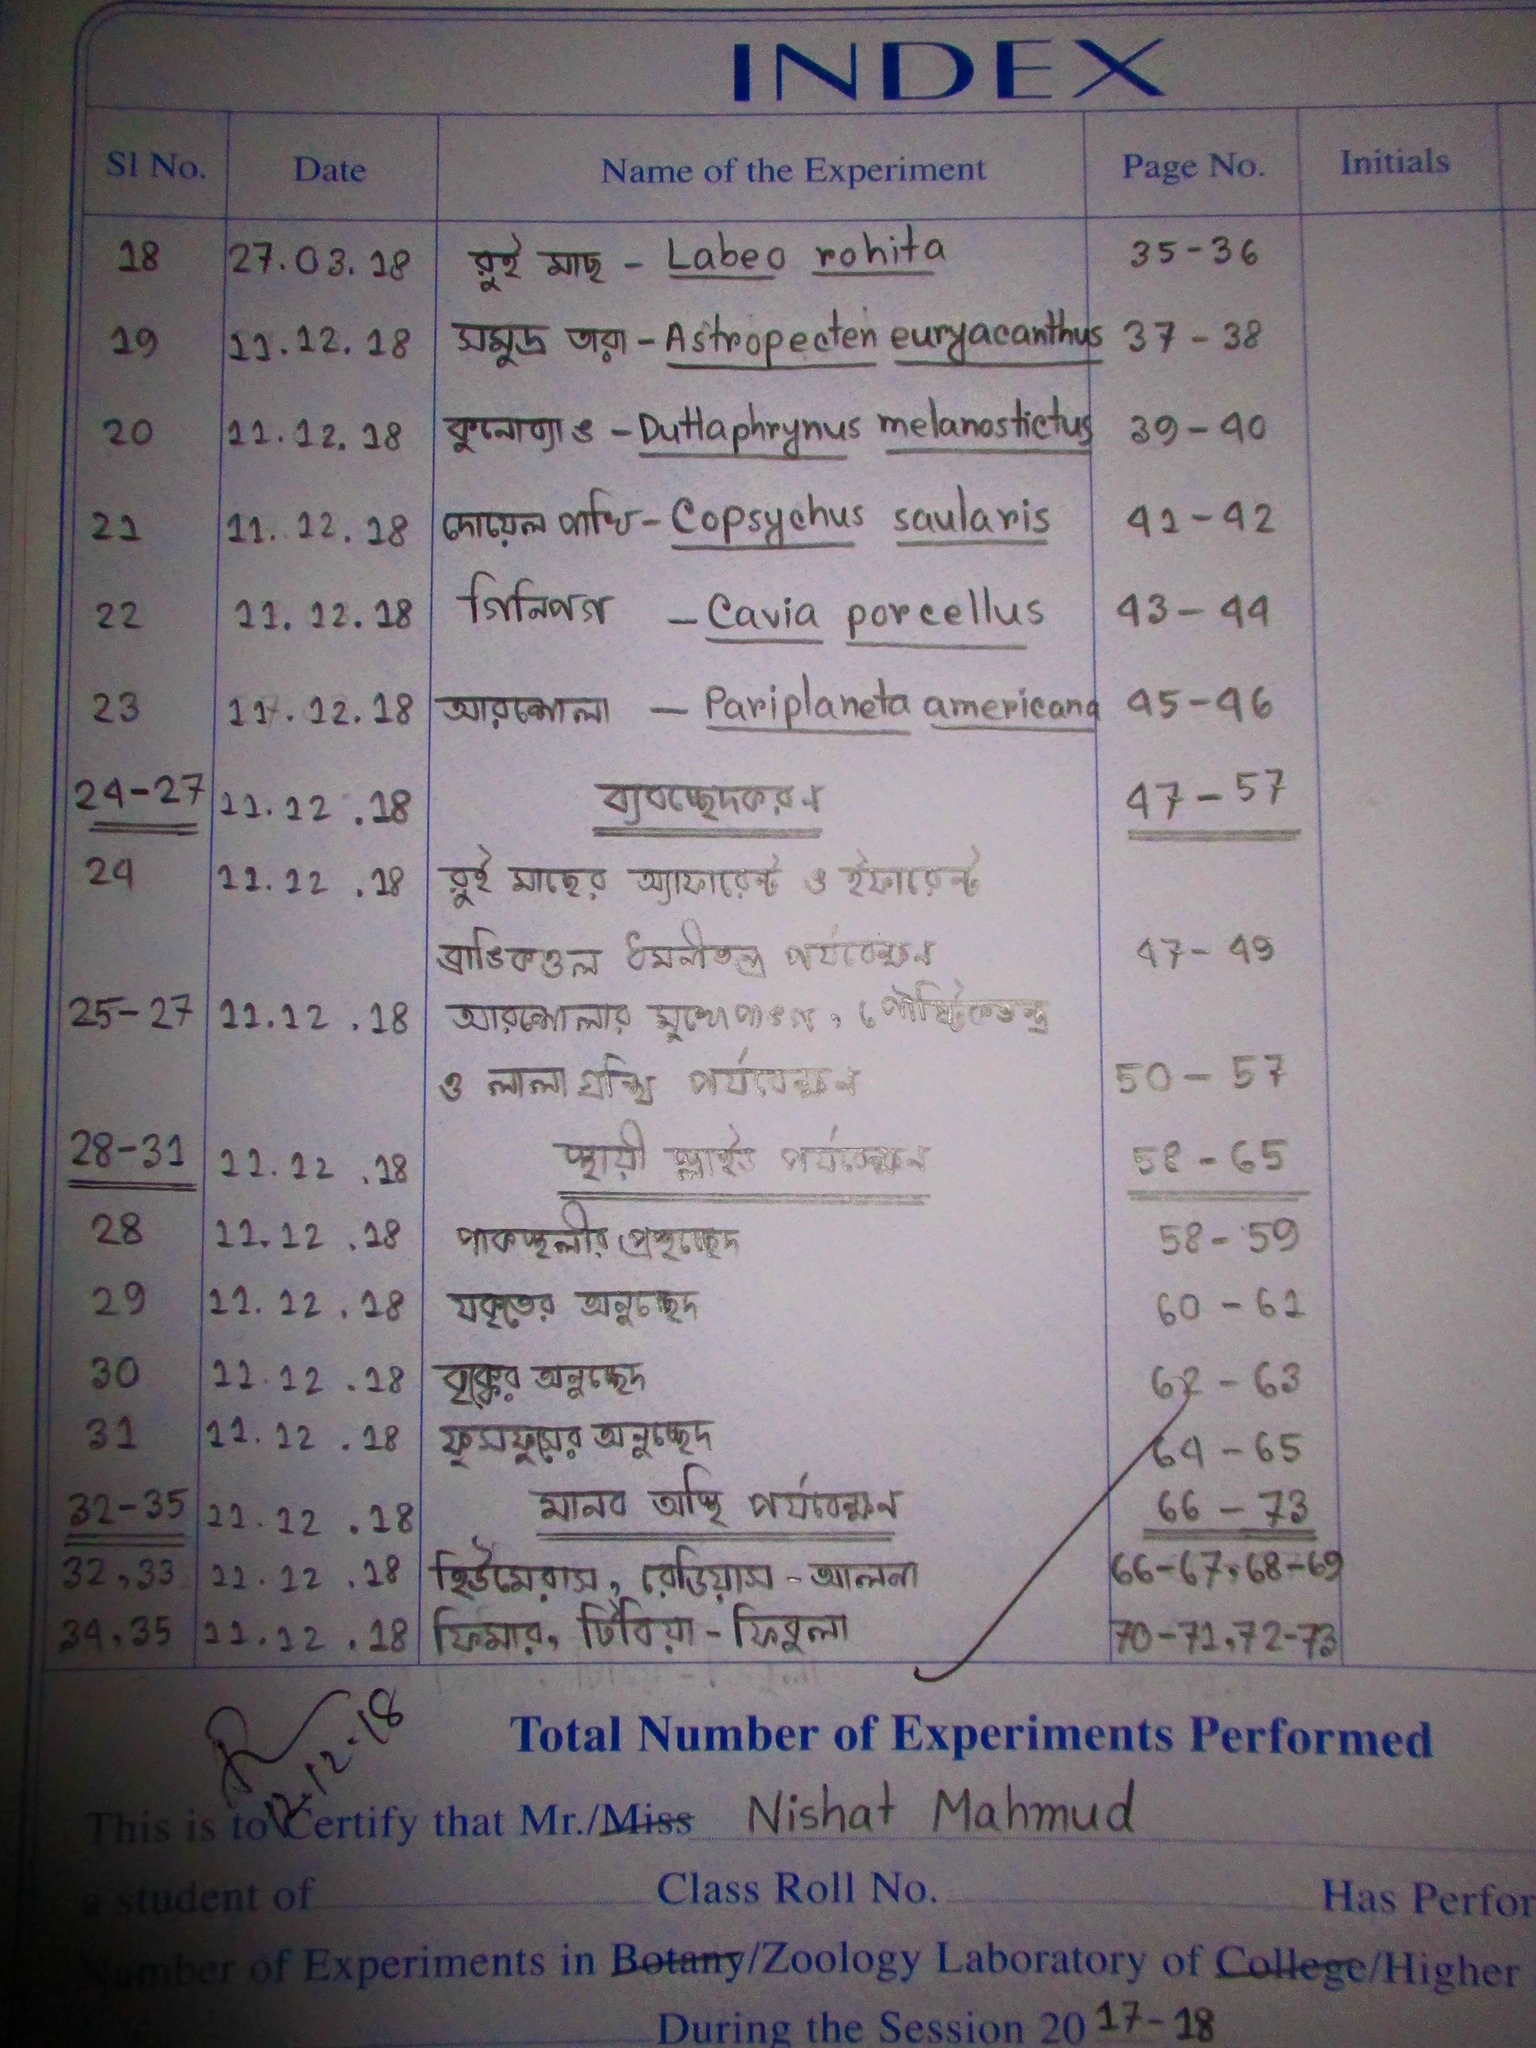 INDEX
Sl No. Date Name of the Experiment Page No. Initials
18 27.03.18 রুই মাছ - Labeo rohita 35-36
19 11.12.18 সমুদ্র তারা - Astropecten euryacanthus 37-38
20 11.12.18 কুনোব্যাঙ - Duttaphrynus melanostictus 39-40
21 11.12.18 দোয়েল পাখি - Copsychus saularis 41-42
22 11.12.18 গিনিপিগ - Cavia porcellus 43-44
23 11.12.18 আরশোলা - Pariplaneta americana 45-46
24-27 11.12.18 ব্যবচ্ছেদকরণ 47-57
24 11.12.18 রুই মাছের অ্যাফারেন্ট ও ইফারেন্ট
ব্রাঙ্কিওল ধমনীতন্ত্র পর্যবেক্ষণ 47-49
25-27 11.12.18 আরশোলার মুখোপাঙ্গ, পৌষ্টিকতন্ত্র
ও লালাগ্রন্থি পর্যবেক্ষণ 50-57
28-31 11.12.18 স্থায়ী স্লাইড পর্যবেক্ষণ 58-65
28 11.12.18 পাকস্থলীর প্রস্থচ্ছেদ 58-59
29 11.12.18 যকৃতের অনুচ্ছেদ 60-61
30 11.12.18 বৃক্কের অনুচ্ছেদ 62-63
31 11.12.18 ফুসফুসের অনুচ্ছেদ 64-65
32-35 11.12.18 মানব অস্থি পর্যবেক্ষণ 66-73
32,33 11.12.18 হিউমেরাস, রেডিয়াস-আলনা 66-67,68-69
34,35 11.12.18 ফিমার, টিবিয়া-ফিবুলা 70-71,72-73
Total Number of Experiments Performed
12-12-18
This is to Certify that Mr./Miss Nishat Mahmud
a student of Class Roll No. Has Perfor
Number of Experiments in Botany/Zoology Laboratory of College/Higher
During the Session 2017-18